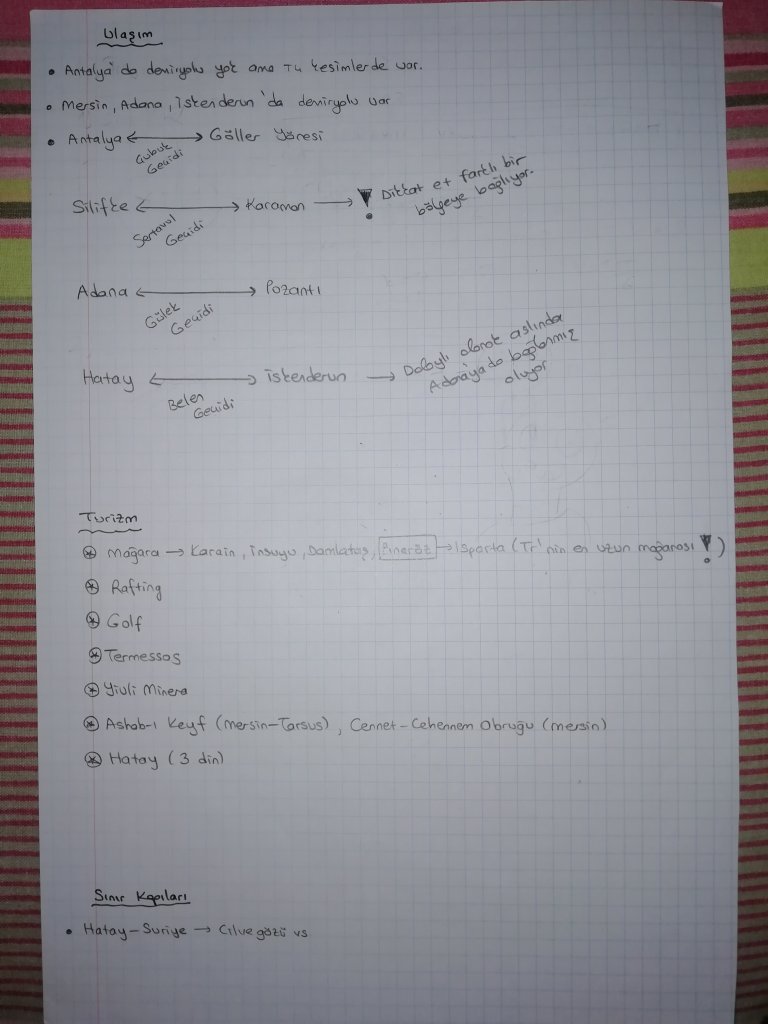 Ulaşım
• Antalya'da demiryolu yok ama T4 kesimlerde var.
• Mersin, Adana, İskenderun'da demiryolu var
• Antalya ⟷ Göller Yöresi
Çubuk Geçidi
Silifke ⟷ Karaman → ! Dikkat et farklı bir
bölgeye bağlıyor.
Sertavul Geçidi
Adana ⟷ Pozantı
Gülek Geçidi
Hatay ⟷ İskenderun → Dolaylı olarak aslında
Adana'ya da bağlanmış
oluyor
Belen Geçidi
Turizm
⊛ Mağara → Karain, İnsuyu, Damlataş, Pınargöz → Isparta (Tr'nin en uzun mağarası !)
⊛ Rafting
⊛ Golf
⊛ Termessos
⊛ Yivli Minera
⊛ Ashab-ı Keyf (mersin-Tarsus), Cennet-Cehennem Obruğu (mersin)
⊛ Hatay (3 din)
Sınır Kapıları
• Hatay-Suriye → Cilvegözü vs